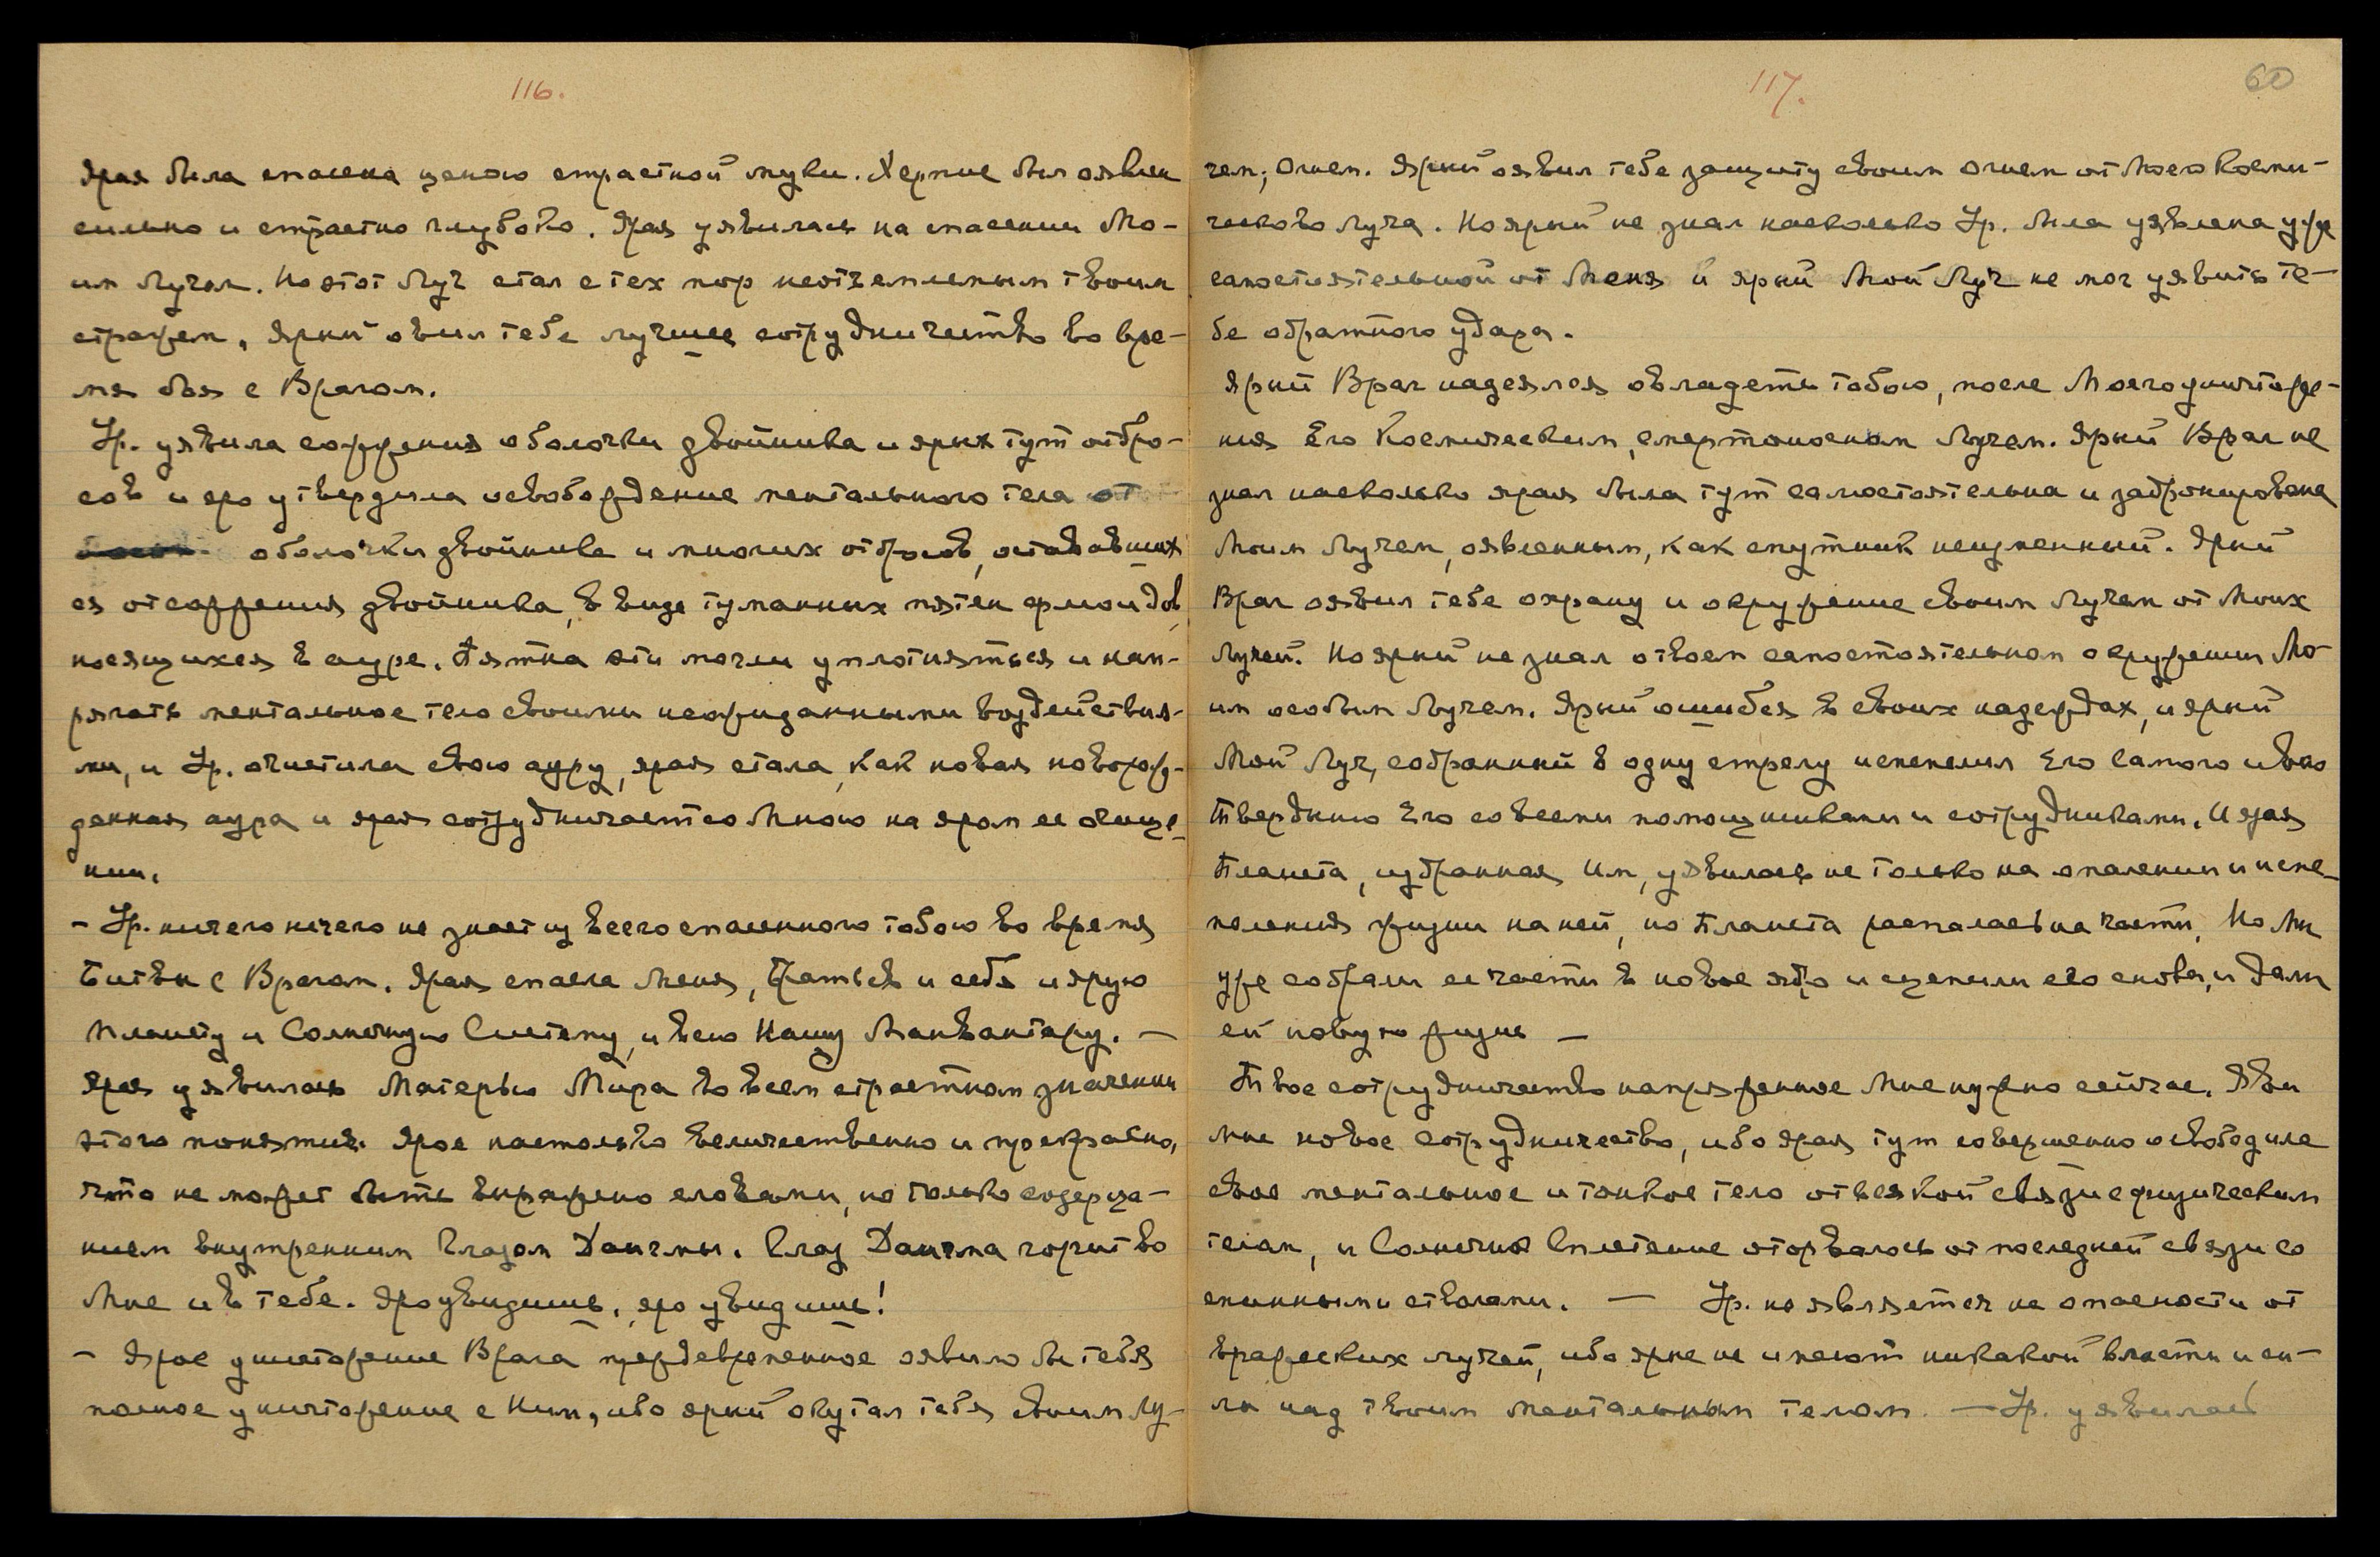 116.
Ярая была спасена ценою страстной муки. Хермие был оявлен
сильно и страстно глубоко. Ярая уявилась на спасении Мо-
им Лучам. Но этот Луч стал с тех пор неотъемлемым твоим
стражем, ярый овил тебе лучшее сотрудничество во вре-
мя боя с Врагом.
Ур. уявила сожжения оболочки двойника и ярых тут отбро-
сов и яро утвердила освобождение ментального тела от
оболочки двойника и многих отбросов, остававших
ся от сожжения двойника, в виде туманных пятен флюидов,
носящихся в ауре. Пятна эти могли уплотняться и нап-
рягать ментальное тело своими неожиданными воздействия-
ми, и Ур. очистила свою ауру, ярая стала, как новая новорож-
денная аура и ярая сотрудничает со Мною на яром ее очище-
нии.
- Ур. ничего ничего не знает из всего спасенного тобою во время
Битвы с Врагом. Ярая спасла Меня, Братьев и себя и ярую
планету и Солнечную Систему, и всю Нашу Манвантару. —
Ярая уявилась Матерью Мира во всем страстном значении
этого понятия. Ярое настолько величественно и прекрасно,
что не может быть выражено словами, но только созерца-
нием внутренним Глазом Дангмы. Глаз Дангма горит во
Мне и в тебе. Яро увидишь, яро увидишь!
- Ярое уничтожение Врага преждевременное оявило бы тебя
полное уничтожение с Ним, ибо ярый окутал тебя своим Лу-
117.
60
чем, Огнем. Ярый оявил тебе защиту своим Огнем от Моего Косми-
ческого Луча. Но ярый не знал насколько Ур. была уявлена уже
самостоятельной от Меня и ярый Мой Луч не мог уявить те-
бе обратного удара.
Ярый Враг надеялся овладеть тобою, после Моего уничтоже-
ния Его Космическим, смертоносным Лучем. Ярый Враг не
знал насколько ярая была тут самостоятельна и забронирована
Моим Лучем, оявленным, как спутник неизменный. Ярый
Враг оявил тебе охрану и окружение своим Лучем от Моих
Лучей. Но ярый не знал о твоем самостоятельном окружении Мо-
им особым Лучем. Ярый ошибся в своих надеждах, и ярый
Мой Луч, собранный в одну стрелу испепелил Его Самого и всю
Твердыню Его со всеми помощниками и сотрудниками. И ярая
Планета, избранная Им, уявилась не только на опалении и испе-
пеления жизни на ней, но Планета распалась на части, Но Мы
уже собрали ее части в новое ядро и сцепили его снова, и дали
ей новую жизнь —
Твое сотрудничество напряженное Мне нужно сейчас. Яви
мне новое сотрудничество, ибо ярая тут совершенно освободила
свое ментальное и тонкое тело от всякой связи с физическим
телом, и Солнечное Сплетение оторвалось от последней связи со
спинными стволами. — Ур. не является на опасности от
вражеских лучей, ибо ярые не имеют никакой власти и си-
лы над твоим ментальным телом. — Ур. уявилась